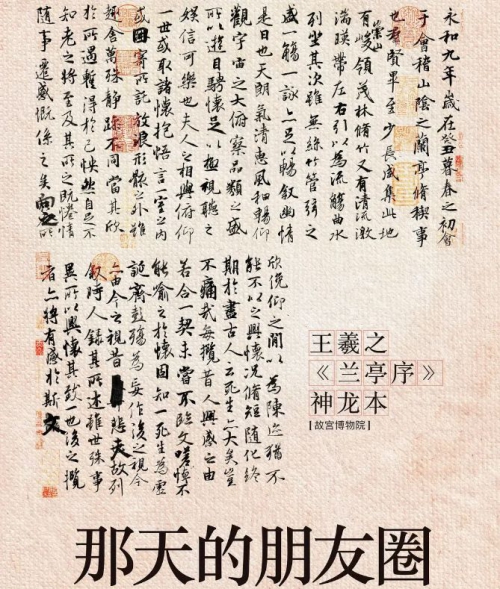 永和九年歲在癸丑暮春之初會
于會稽山陰之蘭亭脩稧事
也羣賢畢至少長咸集此地
有崇山峻領茂林脩竹又有清流激
湍暎帶左右引以為流觴曲水
列坐其次雖無絲竹管弦之
盛一觴一詠亦足以暢敘幽情
是日也天朗氣清惠風和暢仰
觀宇宙之大俯察品類之盛
所以遊目騁懷足以極視聽之
娛信可樂也夫人之相與俯仰
一世或取諸懷抱悟言一室之內
或因寄所託放浪形骸之外雖
趣舍萬殊靜躁不同當其欣
於所遇暫得於己怏然自足不
知老之將至及其所之既惓情
隨事遷感慨係之矣向之所
欣俛仰之閒以為陳迹猶不
能不以之興懷況脩短隨化終
期於盡古人云死生亦大矣豈
不痛哉每攬昔人興感之由
若合一契未嘗不臨文嗟悼不
能喻之於懷固知一死生為虛
誕齊彭殤為妄作後之視今
亦由今之視昔悲夫故列
敘時人錄其所述雖世殊事
異所以興懷其致一也後之攬
者亦將有感於斯文
王羲之
《兰亭序》
神龙本
故宫博物院
那天的朋友圈